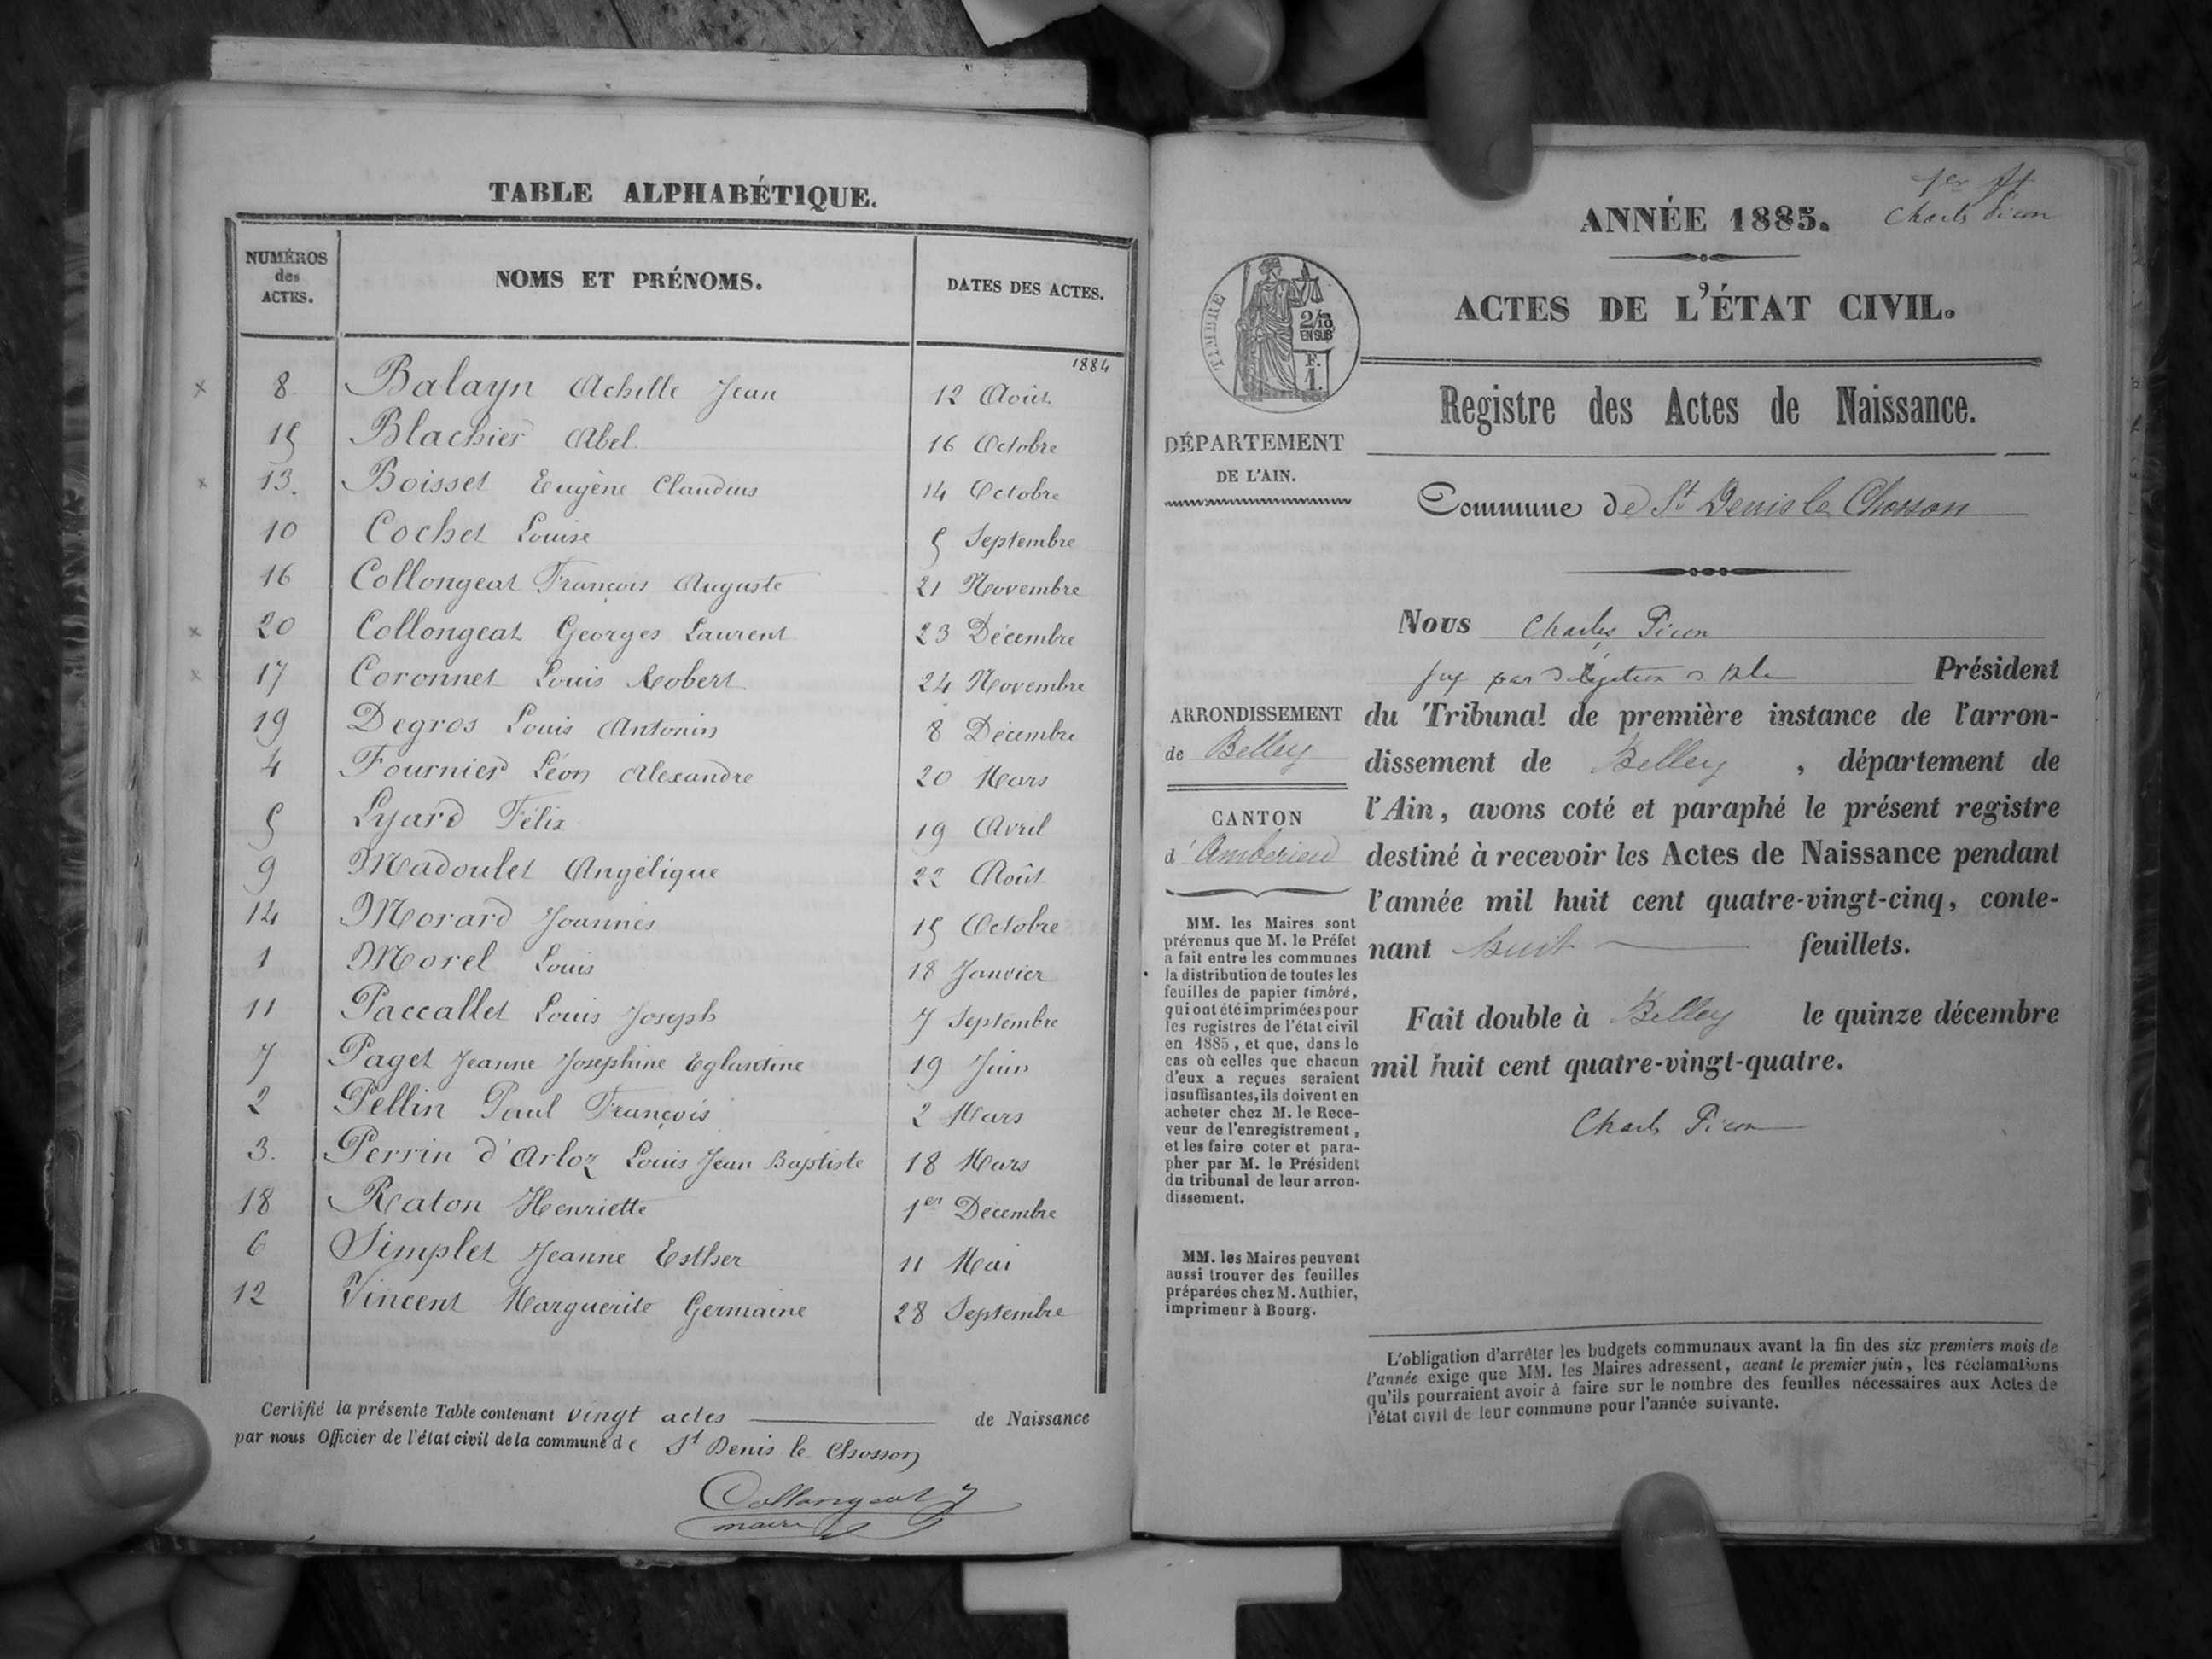 TABLE ALPHABÉTIQUE.
NUMÉROS des ACTES. NOMS ET PRÉNOMS. DATES DES ACTES.
1884
x 8. Balayn Achille Jean 12 Août
15 Blachier Abel 16 Octobre
x 13. Boisset Eugène Claudius 14 Octobre
10 Cochet Louise 5 Septembre
16 Collongeat François Auguste 21 Novembre
x 20 Collongeat Georges Laurent 23 Décembre
x 17 Coronnet Louis Robert 24 Novembre
19 Degros Louis Antonin 8 Décembre
4 Fournier Léon Alexandre 20 Mars
5 Lyard Félix 19 Avril
9 Madoulet Angélique 22 Août
14 Morard Joannès 15 Octobre
1 Morel Louis 18 Janvier
11 Paccallet Louis Joseph 7 Septembre
7 Paget Jeanne Joséphine Eglantine 19 Juin
2 Pellin Paul François 2 Mars
3. Perrin d'Arloz Louis Jean Baptiste 18 Mars
18 Raton Henriette 1er Décembre
6 Simplet Jeanne Esther 11 Mai
12 Vincent Marguerite Germaine 28 Septembre
Certifié la présente Table contenant vingt actes de Naissance
par nous Officier de l'état civil de la commune de St Denis le Chosson
Collongeat
maire
1er
Charles Picon
ANNÉE 1885.
ACTES DE L'ÉTAT CIVIL.
TIMBRE
2/10
EN SUS
F.
1.
Registre des Actes de Naissance.
DÉPARTEMENT
DE L'AIN.
Commune de St Denis le Chosson
Nous Charles Picon
par délégation Président
du Tribunal de première instance de l'arron-
dissement de Belley, département de
l'Ain, avons coté et paraphé le présent registre
destiné à recevoir les Actes de Naissance pendant
l'année mil huit cent quatre-vingt-cinq, conte-
nant huit feuillets.
Fait double à Belley le quinze décembre
mil huit cent quatre-vingt-quatre.
Charles Picon
ARRONDISSEMENT
de Belley
CANTON
d'Ambérieu
MM. les Maires sont
prévenus que M. le Préfet
a fait entre les communes
la distribution de toutes les
feuilles de papier timbré,
qui ont été imprimées pour
les registres de l'état civil
en 1885, et que, dans le
cas où celles que chacun
d'eux a reçues seraient
insuffisantes, ils doivent en
acheter chez M. le Rece-
veur de l'enregistrement,
et les faire coter et para-
pher par M. le Président
du tribunal de leur arron-
dissement.
MM. les Maires peuvent
aussi trouver des feuilles
préparées chez M. Authier,
imprimeur à Bourg.
L'obligation d'arrêter les budgets communaux avant la fin des six premiers mois de
l'année exige que MM. les Maires adressent, avant le premier juin, les réclamations
qu'ils pourraient avoir à faire sur le nombre des feuilles nécessaires aux Actes de
l'état civil de leur commune pour l'année suivante.